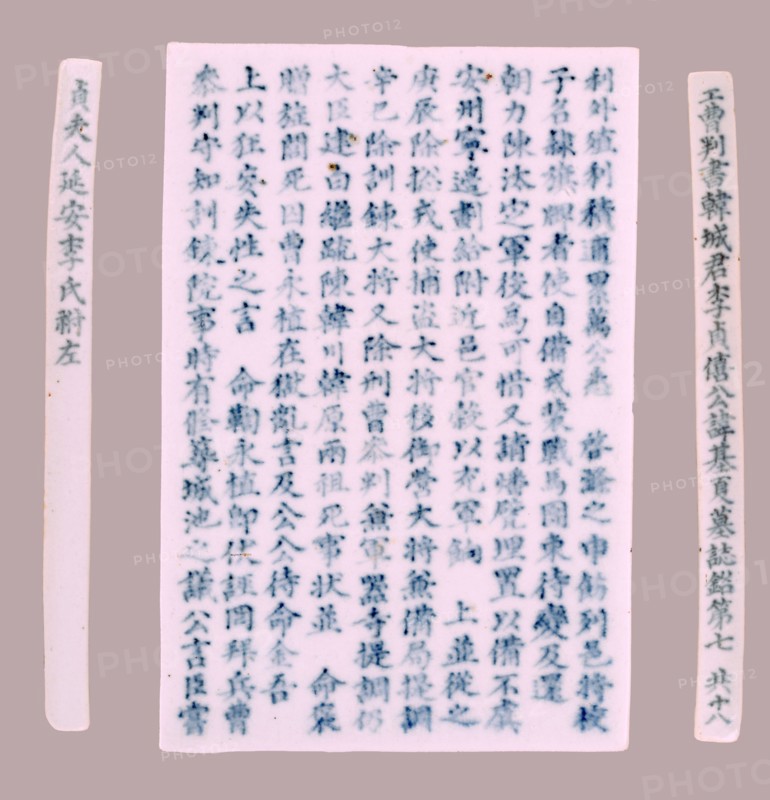 工曹判書韓城君李貞僖公諱基夏墓誌銘第七 共十八
利外殖利積逋累萬公悉 啓蠲之申飭列邑將校
子名隷旗牌者使自備戎裝戰馬團束待變及還
朝力陳汰定軍役爲可惜又請置以備不虞
安州寧邊劃給附近邑官穀以充軍餉 上並從之
庚辰除捴戎使捕盗大將移御營大將兼備局提調
辛巳除訓鍊大將又除刑曹叅判兼軍器寺提調仍
大臣建白繼䟽陳韓川韓原兩祖死事状並 命褒
贈旌閭死囚曹永植在獄亂言及公公待命金吾
上以狂妄失性之言 命鞫永植卽伏誣罔拜兵曹
叅判守知訓鍊院事時有修築城池之議公言臣嘗
貞夫人延安李氏祔左